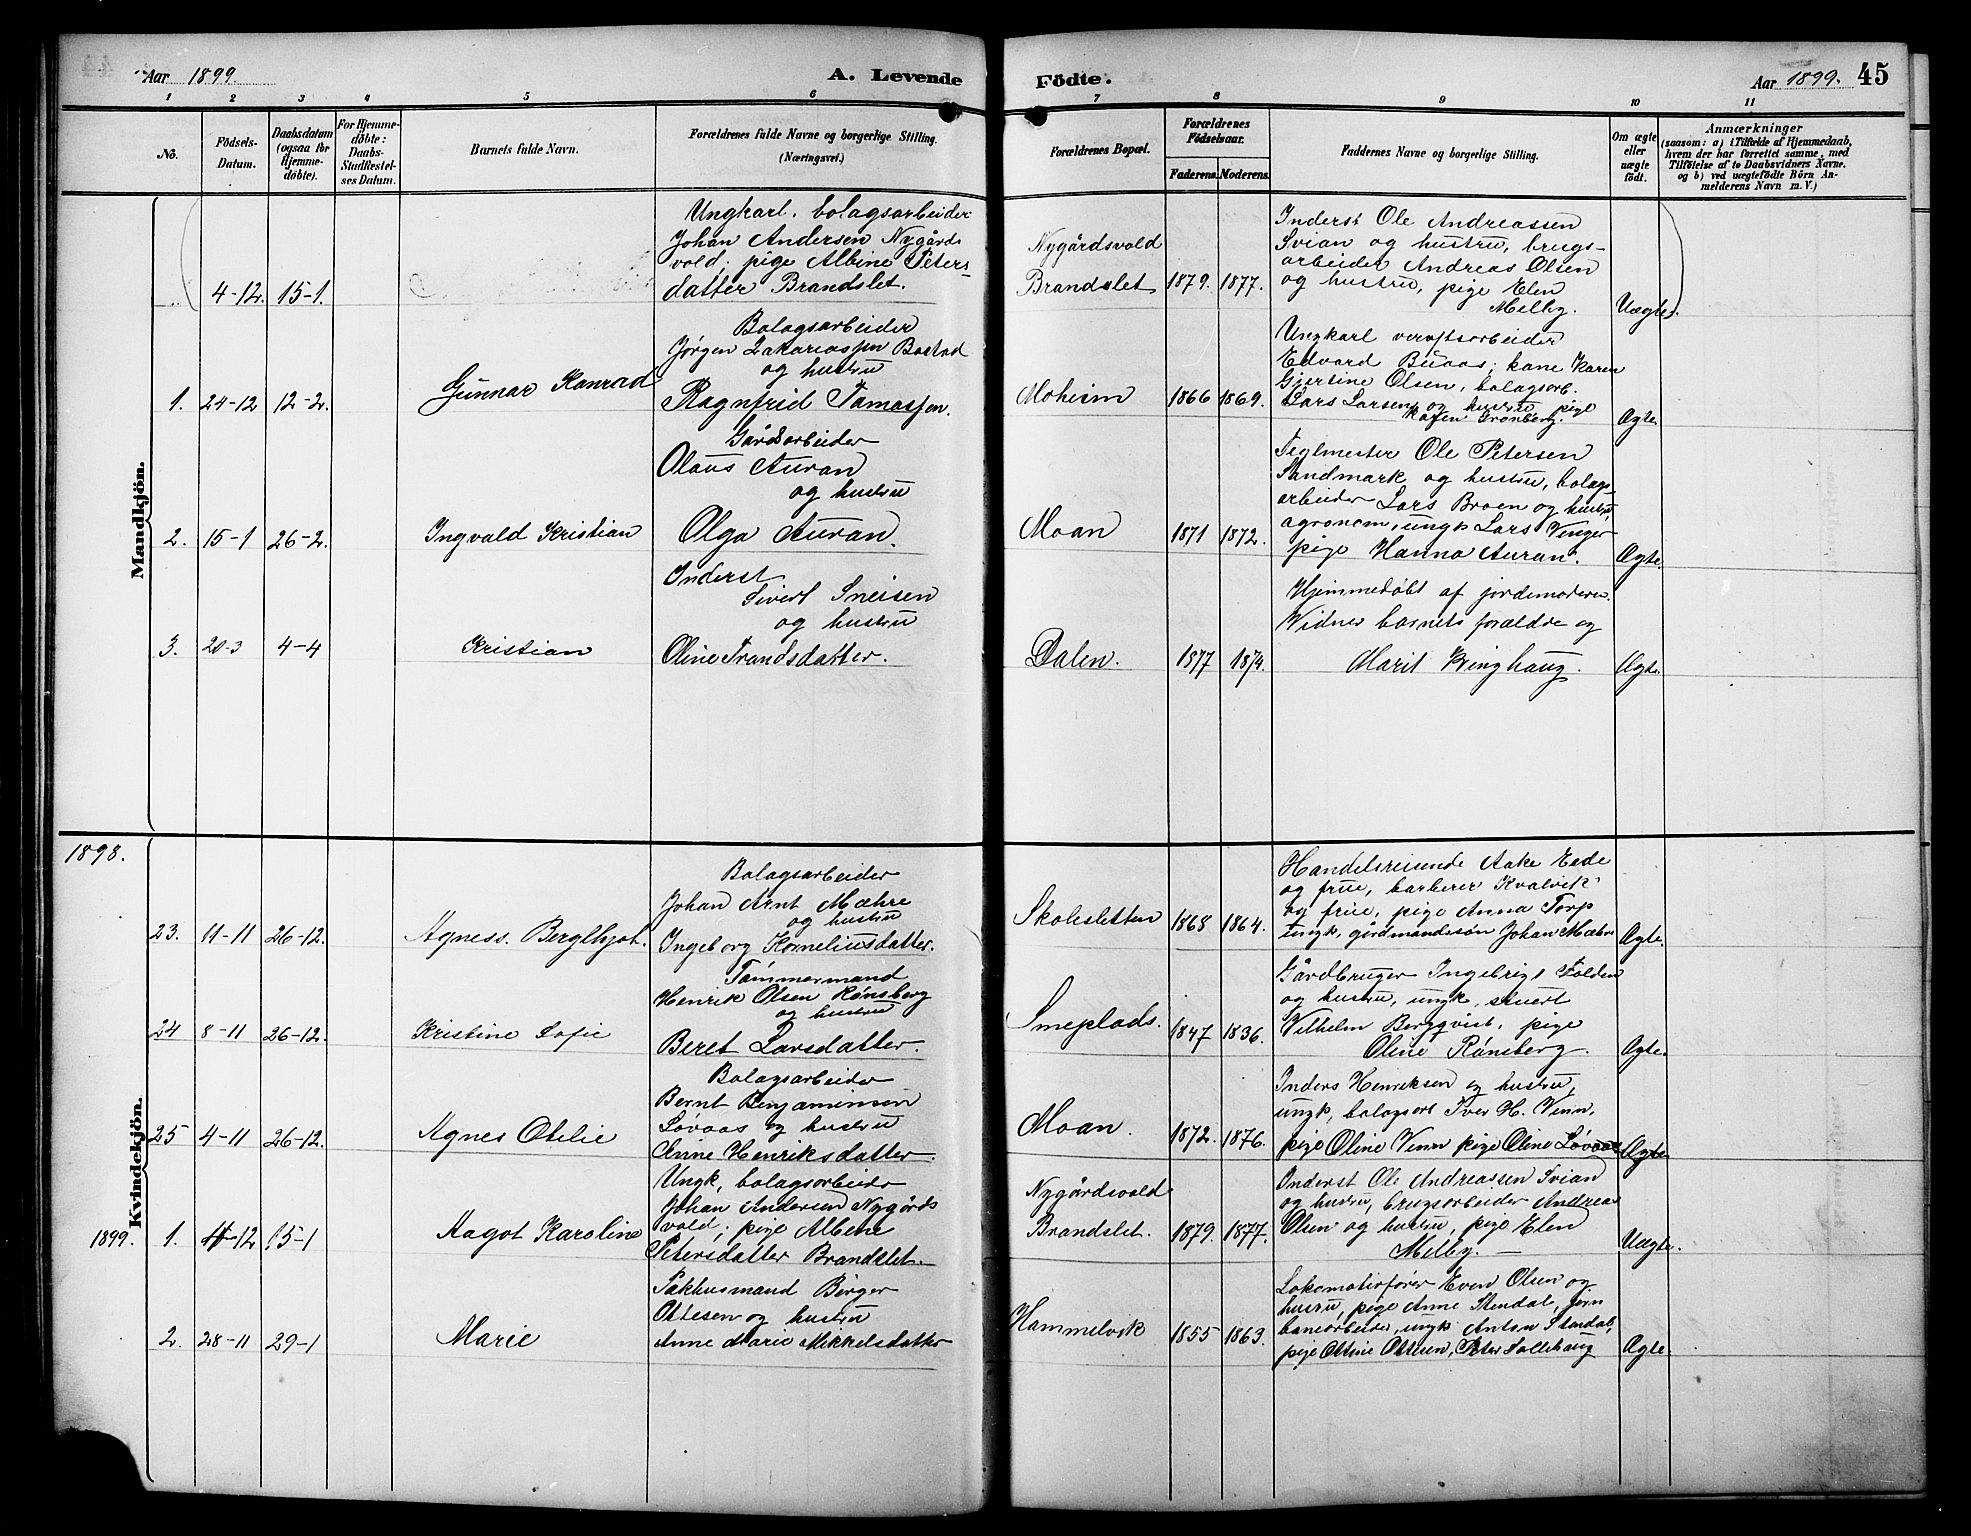 Aar 1899. A. Levende Födte. Aar 1899. 45
1 2 3 4 5 6 7 8 9 10 11
No.
Födsels-Datum.
Daabsdatum (ogsaa for Hjemme-döbte).
For Hjemme-döbte: Daabs-Stadfæstel-ses Datum.
Barnets fulde Navn.
Forældrenes fulde Navne og borgerlige Stilling.
(Næringsvei.)
Forældrenes Bopæl.
Forældrenes Födselsaar.
Faderens. Moderens.
Faddernes Navne og borgerlige Stilling.
Om ægte eller uægte födt.
Anmærkninger
(saasom: a) i Tilfælde af Hjemmedaab,
hvem der har forrettet samme, med
Tilföielse af to Daabsvidners Navne.
og b) ved uægtefödte Börn An-
melderens Navn m. V.)
Mandkjön.
4-12. 15-1.
Ungkarl. bolagsarbeider
Johan Andersen Nygårds
vold, pige Albine Peters-
datter Brandslet.
Nygårdsvold
Brandslet 1879. 1877.
Inderst Ole Andreassen
Svian og hustru, brugs-
arbeider Andreas Olsen
og hustru, pige Elen
Melby. Uægte.
1. 24-12 12-2. Gunnar Konrad
Bolagsarbeider
Jørgen Zakariassen Bostad
og hustru
Ragnfrid Tomassen.
Moheim 1866 1869.
Ungkarl
Edvard Buaas, kone Karen
Gjertine Olsen, bolagsarb.
Lars Larsen og hustru pige
Karen Grønberg. Ægte.
2. 15-1 26-2. Ingvald Kristian
Gårdsarbeider
Olaus Auran
og hustru
Olga Auran.
Moan 1871 1872.
Teglmester Ole Petersen
Sandmark og hustru, bolags-
arbeider Lars Broen og hustru,
agronom, ungk Lars Vinger
pige Hanna Auran. Ægte.
3. 20-3 4-4 Kristian
Inderst
Sivert Sneisen
og hustru
Oline Trondsdatter.
Dalen. 1877 1874.
Hjemmedøbt af jordemoderen.
Vidner barnets forældre og
Marit Kringhaug. Ægte.
Kvindekjön.
1898.
23. 11-11 26-12. Agness. Berglhjot.
Bolagsarbeider
Johan Arnt Mæhre
og hustru
Ingeborg Korneliusdatter.
Skolesletten 1868 1864.
Handelsreisende Aake Eede
og frue, barberer Kvalvik
og frue, pige Anna Torp
ungk, gårdmandssøn Johan Mæhre Ægte.
24 8-11 26-12. Kristine Sofie
Tømmermand
Henrik Olsen Rønsberg
og hustru
Beret Larsdatter.
Smeplads. 1847 1836.
Gårdbruger Ingebrigt Folden
og hustru, ungk. stuert
Vilhelm Bergqvist, pige
Oline Rønsberg. Ægte.
25 4-11 26-12. Agnes Otelie
Bolagsarbeider
Bernt Benjaminsen
Løvaas og hustru
Anne Henriksdatter.
Moan. 1872. 1876.
Inders Henriksen og hustru,
ungk, bolagsarb Iver H. Vinn,
pige Oline Vinn pige Oline Løvaas Ægte
1899. 1. 4-12 15-1 Magot Karoline
Ungk, bolagsarbeider
Johan Andersen Nygårds
vold, pige Albine
Petersdatter Brandslet.
Nygårdsvold
Brandslet. 1879. 1877.
Inderst Ole Andreassen Svian
og hustru, brugsarbeider Andreas
Olsen og hustru, pige Elen
Melby. Uægte.
2. 28-11 29-1 Marie
Pakhusmand Birger
Ottesen og hustru
Anne Marie Mikkelsdatter
Hammelvik 1855 1863.
Lokomotivfører Even Olsen og
hustru, pige Anne Stendal, jern
banearbeider, ungk Anton Stendal,
pige Ottine Ottesen, Peter Sollihaug Ægte.